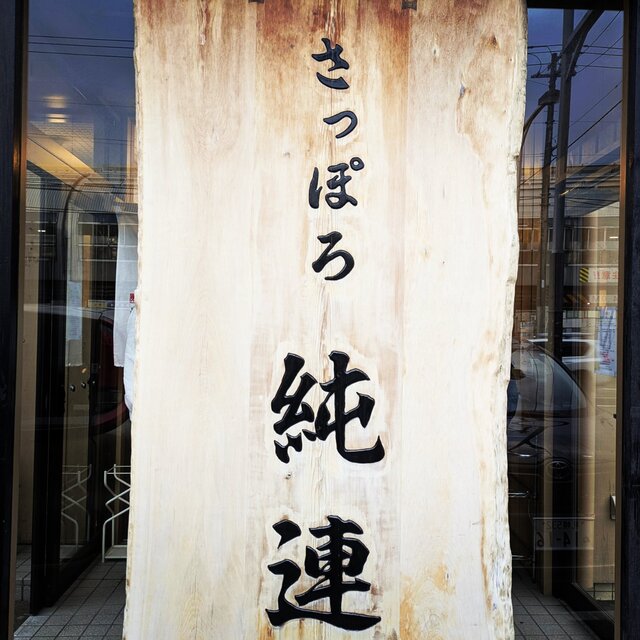 さっぽろ
純連